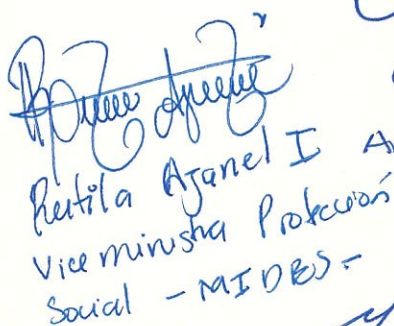 Rutila Ajanel I
Vice ministra Protección
Social - MIDES -